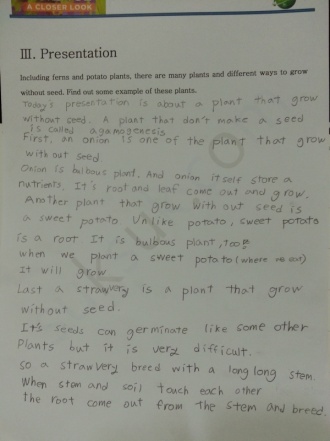 A CLOSER LOOK
III. Presentation
Including ferns and potato plants, there are many plants and different ways to grow
without seed. Find out some example of these plants.
Today's presentation is about a plant that grow
without seed. A plant that don't make a seed
is called agamogenesis
First, an onion is one of the plant that grow
with out seed
Onion is bulbous plant. And onion itself store a
nutrients. It's root and leaf come out and grow.
Another plant that grow with out seed is
a sweet potato. Unlike potato, sweet potato
is a root It is bulbous plant, too.
when we plant a sweet potato (where
It will grow
Last a strawvery is a plant that grow
without seed.
It's seeds can germinate like some other
Plants but it is very difficult.
so a strawvery breed with a long long stem.
When stem and soil touch each other
the root come out from the stem and breed.